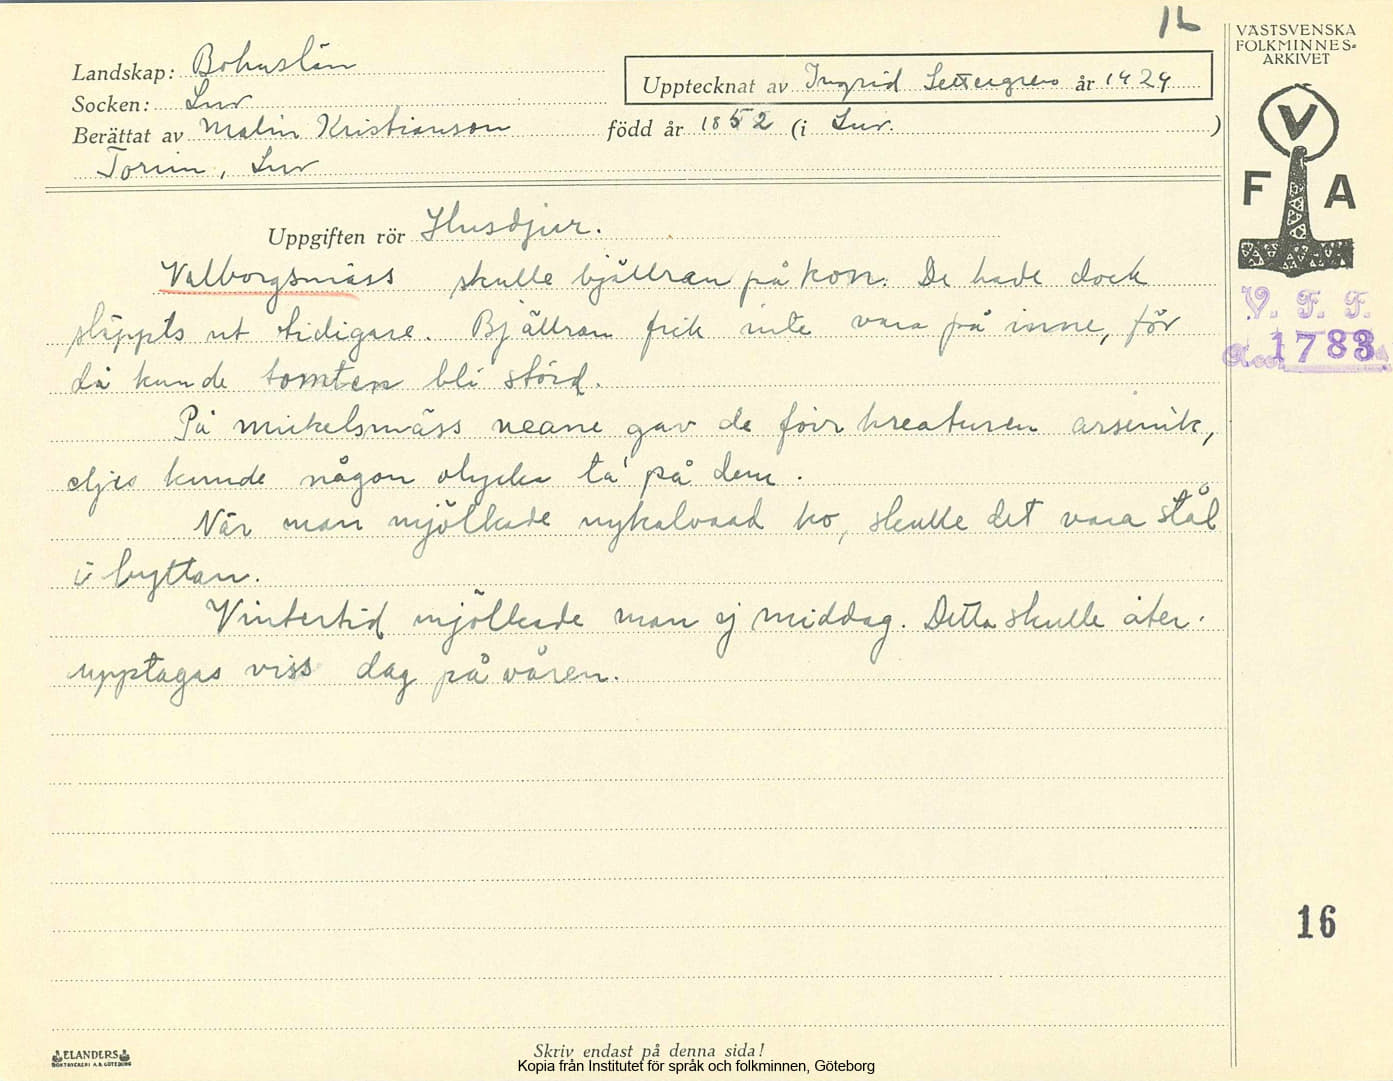 16
VÄSTSVENSKA
FOLKMINNES-
ARKIVET
Landskap: Bohuslän
Upptecknat av Ingrid Settergren år 1929
Socken: Lur
Berättat av Malin Kristianson född år 1852 (i Lur. )
Torim, Lur
V
F A
Uppgiften rör Husdjur.
Valborgsmäss skulle bjällran på kon. De hade dock
släppts ut tidigare. Bjällran fick inte vara på inne, för
då kunde tomten bli störd.
På mickelsmäss neane gav de förr kreaturen arsenik,
eljes kunde någon olycka ta' på dem.
När man mjölkade nykalvad ko, skulle det vara stål
i byttan.
Vintertid mjölkade man ej middag. Detta skulle åter-
upptagas viss dag på våren.
V. F. F.
Acc. 1783
16
ELANDERS
BOKTRYCKERI A.B. GÖTEBORG
Skriv endast på denna sida!
Kopia från Institutet för språk och folkminnen, Göteborg